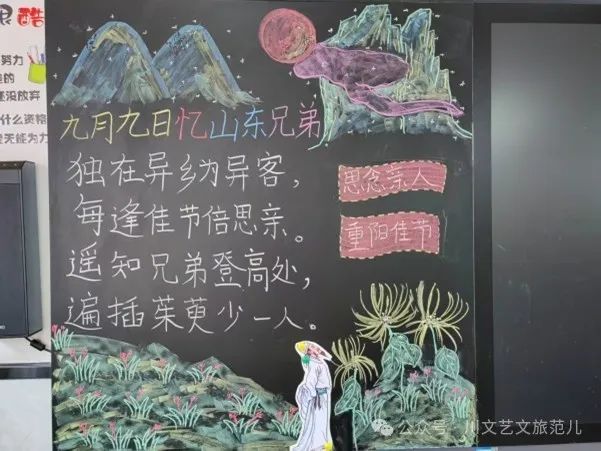 酷
努力
还没放弃
什么资格
无能为力
九月九日忆山东兄弟
独在异乡为异客，
每逢佳节倍思亲。
遥知兄弟登高处，
遍插茱萸少一人。
思念亲人
重阳佳节
公众号 川文艺文旅范儿